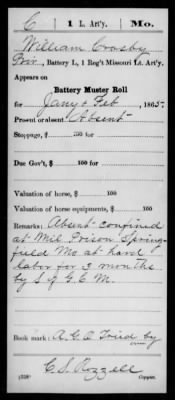 C | 1 L. Art'y. | Mo.
William Crosby
Priv., Battery L, 1 Reg't Missouri Lt. Art'y.
Appears on
Battery Muster Roll
for Jany & Feb, 1865
Present or absent Absent
Stoppage, $ 100 for
Due Gov't, $ 100 for
Valuation of horse, $ 100
Valuation of horse equipments, $ 100
Remarks: Absent confined
at Mil. Prison Spring-
field Mo at hard
labor for 3 months
by S. of G.C.M.
Book mark:
C. S. Rozzell
(358) Copyist.